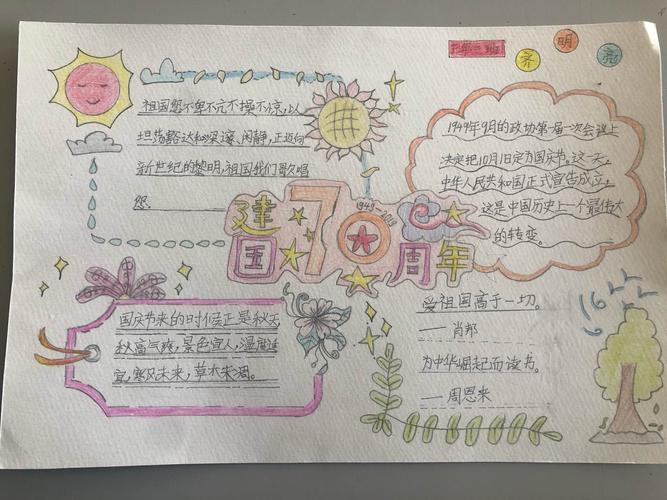 齐 明 亮
祖国您不卑不亢不操不惊,以
坦荡豁达和深邃、闲静,正迈向
新世纪的黎明,祖国我们歌唱
您
1949年9月的政协第一届一次会议上
决定把10月1日定为国庆节。这一天,
中华人民共和国正式宣告成立,
这是中国历史上一个最伟大
的转变。
建国70周年
1949-2019
国庆节来的时候正是秋天
秋高气爽,景色宜人,温度适
宜,寒风未来,草木未凋。
爱祖国高于一切。
——肖邦
为中华崛起而读书。
——周恩来